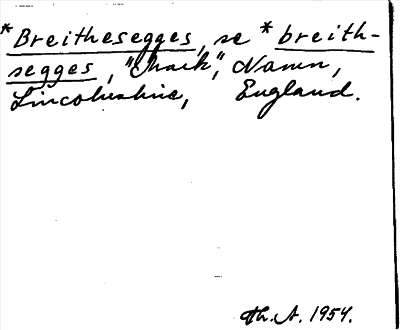 *Breithesegges, se *breith-
segges, "Mark", Navnn,
Lincolnshire, England.
Th. A. 1954.